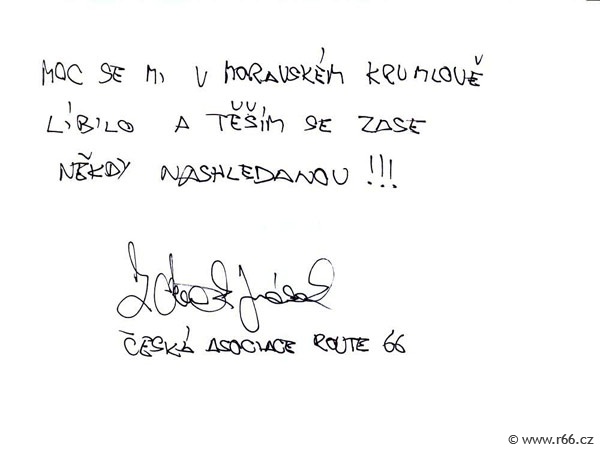 MOC SE MI V MORAVSKÉM KRUMLOVĚ
LÍBILO A TĚŠÍM SE ZASE
NĚKDY NASHLEDANOU !!!
ČESKÁ ASOCIACE ROUTE 66
© www.r66.cz